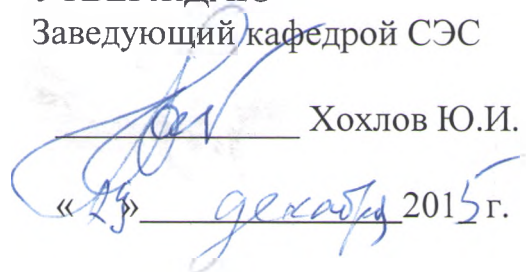 Заведующий кафедрой СЭС
Хохлов Ю.И.
« » декабря 2015 г.